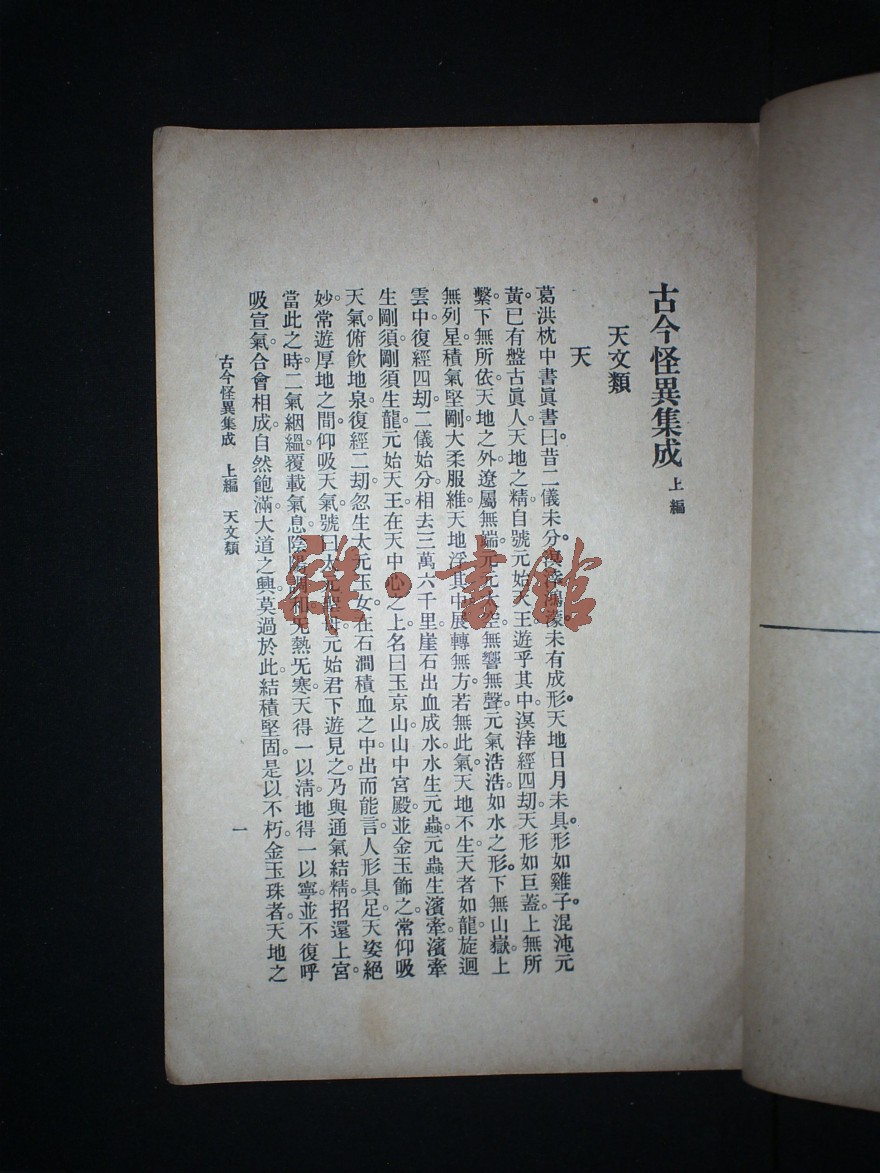 古今怪異集成 上編
天文類
天
葛洪枕中書眞書曰昔二儀未分溟涬鴻濛未有成形天地日月未具形如雞子混沌元
黃已有盤古眞人天地之精自號元始天王遊乎其中溟涬經四劫天形如巨蓋上無所
繫下無所依天地之外遼屬無端元元太空無響無聲元氣浩浩如水之形下無山嶽上
無列星積氣堅剛大柔服維天地浮其中展轉無方若無此氣天地不生天者如龍旋迴
雲中復經四劫二儀始分相去三萬六千里崖石出血成水水生元蟲元蟲生濱牽濱牽
生剛須剛須生龍元始天王在天中心之上名曰玉京山山中宮殿並金玉飾之常仰吸
天氣俯飲地泉復經二劫忽生太元玉女在石澗積血之中出而能言人形具足天姿絕
妙常遊厚地之間仰吸天氣號曰太元聖母元始君下遊見之乃與通氣結精招還上宮
當此之時二氣絪縕覆載氣息陰陽調和旡熱旡寒天得一以淸地得一以寧並不復呼
吸宣氣合會相成自然飽滿大道之興莫過於此結積堅固是以不朽金玉珠者天地之
古今怪異集成 上編 天文類
一
雜·書館